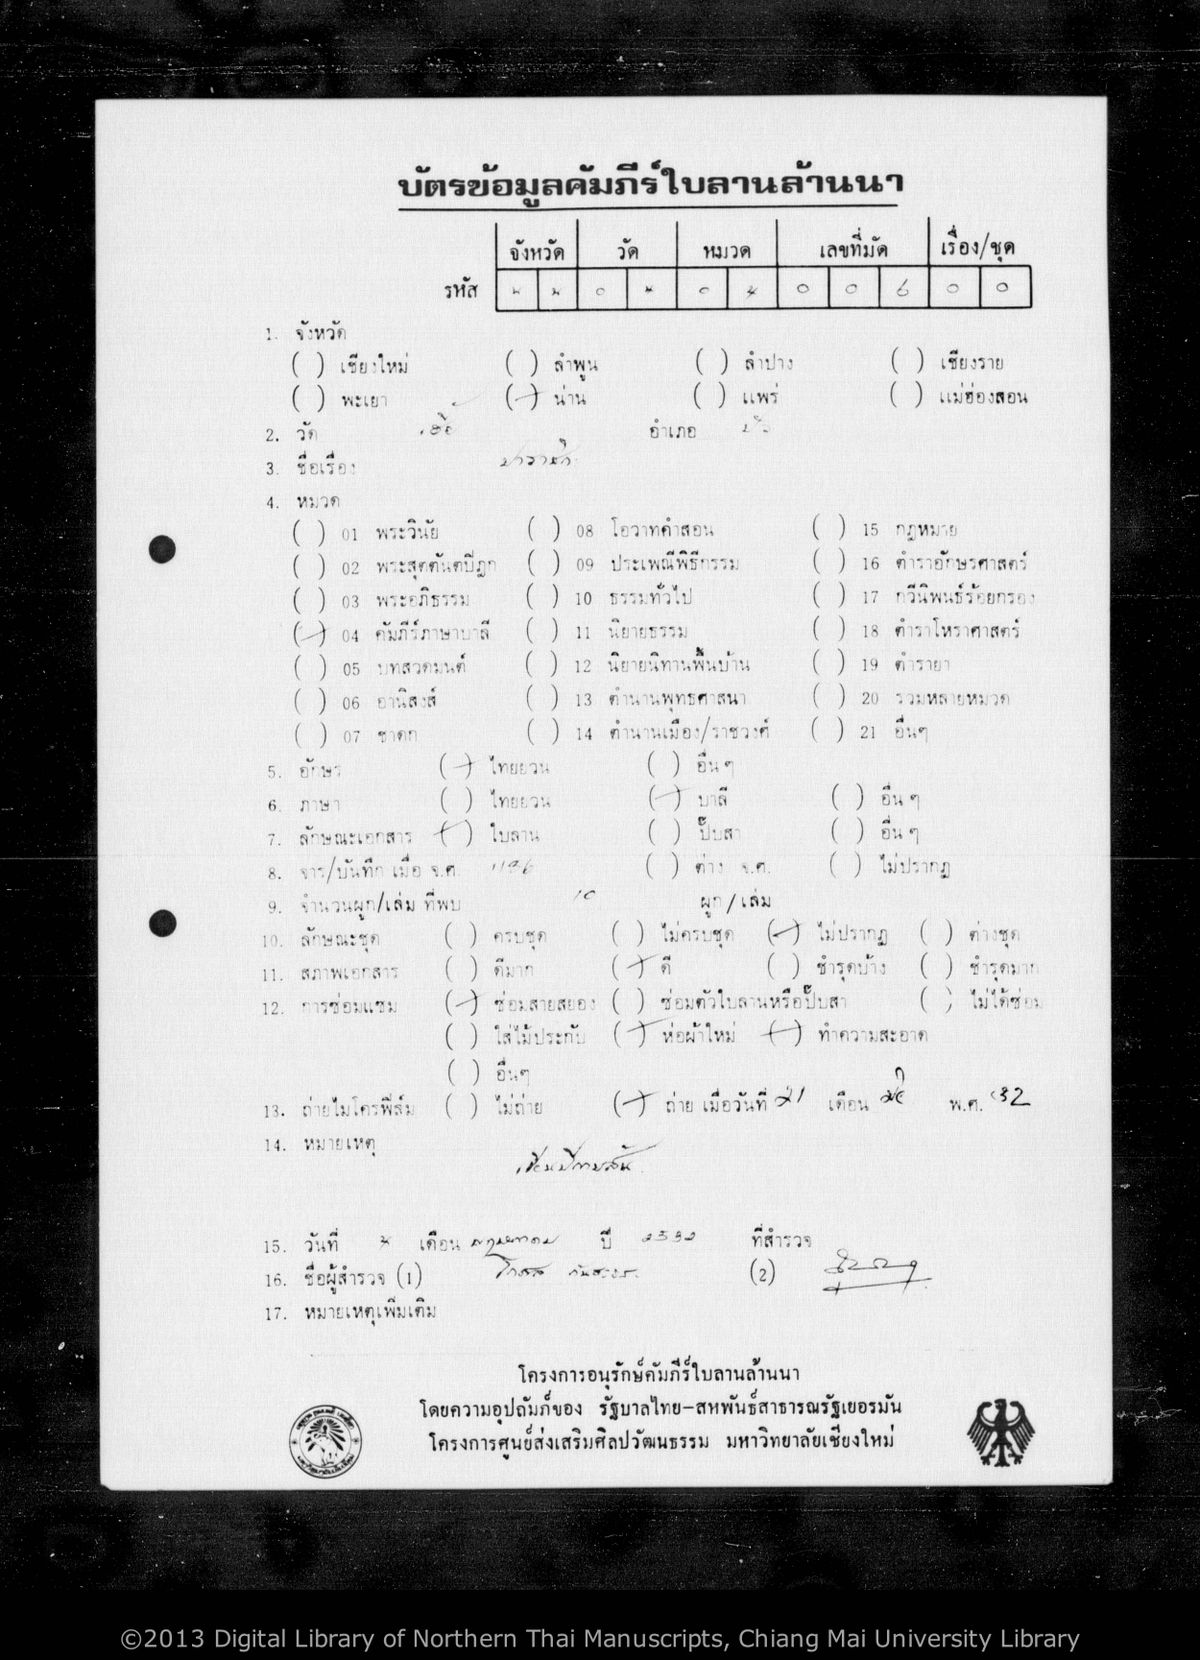 บัตรข้อมูลคัมภีร์ใบลานล้านนา
จังหวัด วัด หมวด เลขที่มัด เรื่อง/ชุด
รหัส น น 0 0 0 6 0 0
1. จังหวัด
( ) เชียงใหม่ ( ) ลำพูน ( ) ลำปาง ( ) เชียงราย
( ) พะเยา (/) น่าน ( ) แพร่ ( ) แม่ฮ่องสอน
2. วัด อำเภอ
3. ชื่อเรื่อง ปาราชิก
4. หมวด
( ) 01 พระวินัย ( ) 08 โอวาทคำสอน ( ) 15 กฎหมาย
( ) 02 พระสุตตันตปิฎก ( ) 09 ประเพณีพิธีกรรม ( ) 16 ตำราอักษรศาสตร์
( ) 03 พระอภิธรรม ( ) 10 ธรรมทั่วไป ( ) 17 กวีนิพนธ์ร้อยกรอง
(/) 04 คัมภีร์ภาษาบาลี ( ) 11 นิยายธรรม ( ) 18 ตำราโหราศาสตร์
( ) 05 บทสวดมนต์ ( ) 12 นิยายนิทานพื้นบ้าน ( ) 19 ตำรายา
( ) 06 อานิสงส์ ( ) 13 ตำนานพุทธศาสนา ( ) 20 รวมหลายหมวด
( ) 07 ชาดก ( ) 14 ตำนานเมือง/ราชวงศ์ ( ) 21 อื่นๆ
5. อักษร (/) ไทยยวน ( ) อื่น ๆ
6. ภาษา ( ) ไทยยวน (/) บาลี ( ) อื่น ๆ
7. ลักษณะเอกสาร (/) ใบลาน ( ) ปั๊บสา ( ) อื่น ๆ
8. จาร/บันทึก เมื่อ จ.ศ. 1196 ( ) ต่าง จ.ศ. ( ) ไม่ปรากฏ
9. จำนวนผูก/เล่ม ที่พบ 10 ผูก/เล่ม
10. ลักษณะชุด ( ) ครบชุด ( ) ไม่ครบชุด (/) ไม่ปรากฏ ( ) ต่างชุด
11. สภาพเอกสาร ( ) ดีมาก (/) ดี ( ) ชำรุดบ้าง ( ) ชำรุดมาก
12. การซ่อมแซม (/) ซ่อมสายสยอง ( ) ซ่อมตัวใบลานหรือปั๊บสา ( ) ไม่ได้ซ่อม
( ) ใส่ไม้ประกับ (/) ห่อผ้าใหม่ (/) ทำความสะอาด
( ) อื่นๆ
13. ถ่ายไมโครฟิล์ม ( ) ไม่ถ่าย (/) ถ่าย เมื่อวันที่ 21 เดือน พ.ศ. 32
14. หมายเหตุ
15. วันที่ เดือน พฤษภาคม ปี 2532 ที่สำรวจ
16. ชื่อผู้สำรวจ (1) (2)
17. หมายเหตุเพิ่มเติม
โครงการอนุรักษ์คัมภีร์ใบลานล้านนา
โดยความอุปถัมภ์ของ รัฐบาลไทย-สหพันธ์สาธารณรัฐเยอรมัน
โครงการศูนย์ส่งเสริมศิลปวัฒนธรรม มหาวิทยาลัยเชียงใหม่
©2013 Digital Library of Northern Thai Manuscripts, Chiang Mai University Library